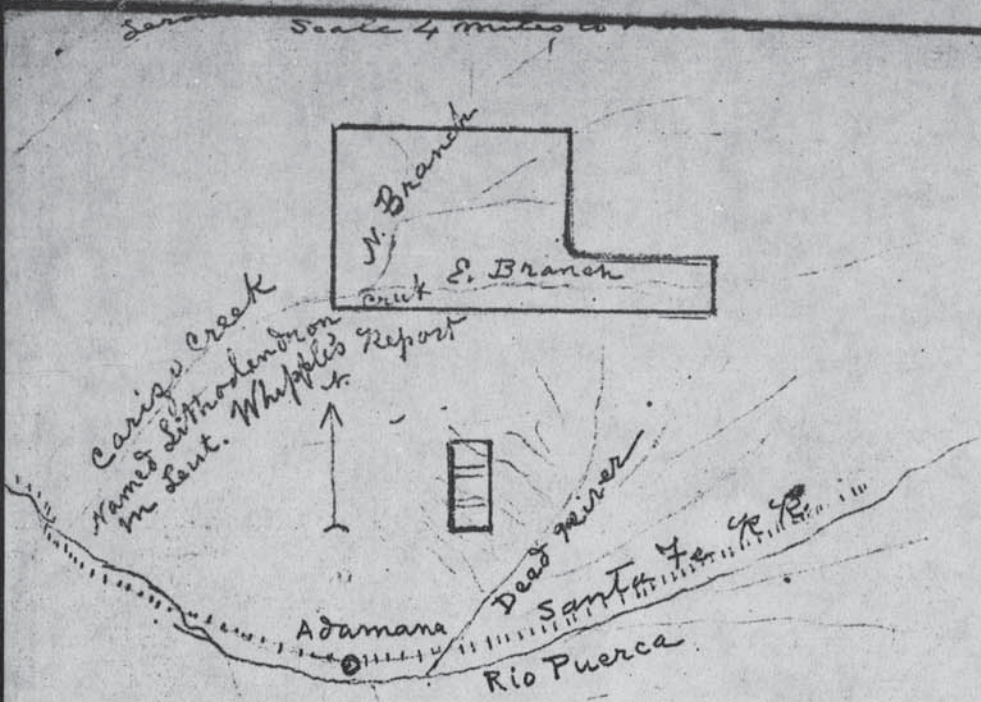 Scale 4 miles to
N. Branch
E. Branch
Creek
Carizo Creek
Named Lithodendron
in Leut. Whipple's Report
N.
Dead River
Santa Fe RR.
Adamana
Rio Puerca